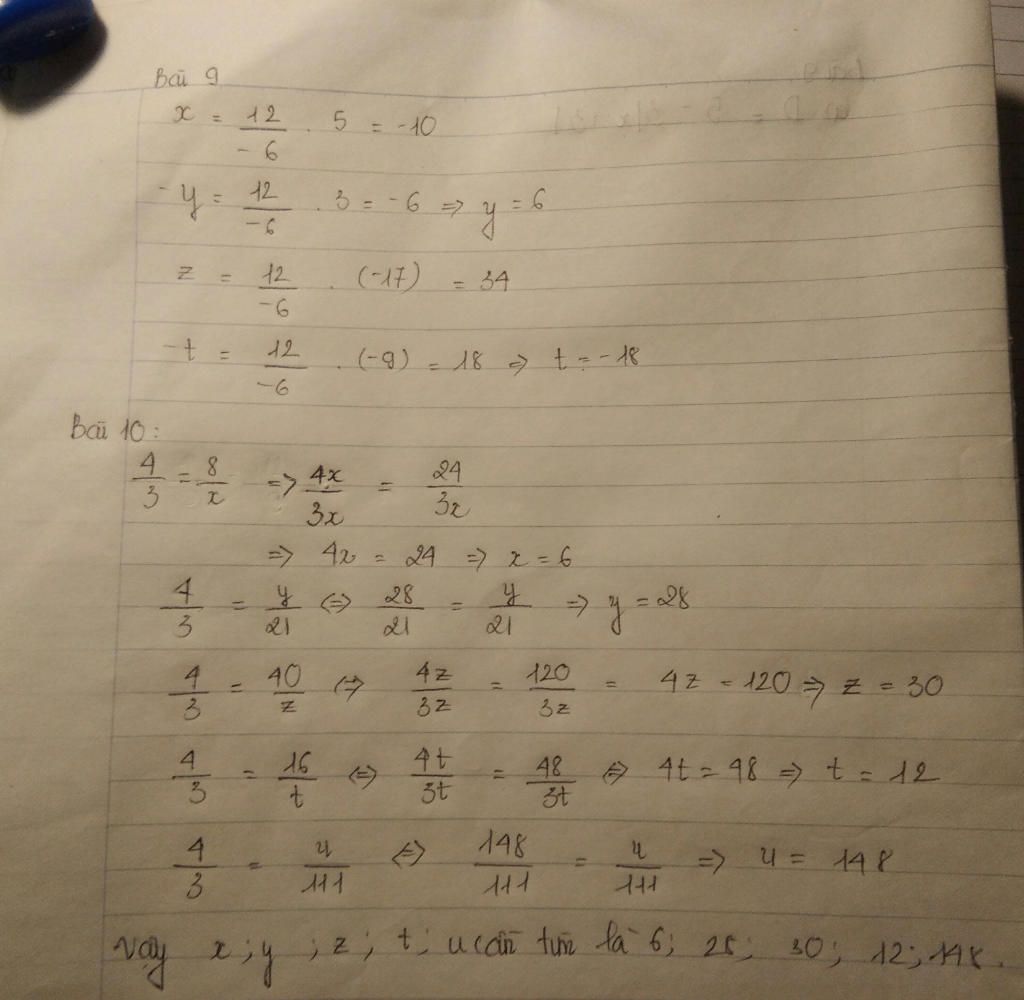 Bài 9
x = 12/-6 . 5 = -10
-y = 12/-6 . 3 = -6 => y = 6
z = 12/-6 . (-17) = 34
-t = 12/-6 . (-9) = 18 => t = -18
Bài 10:
4/3 = 8/x => 4x/3x = 24/3x
=> 4x = 24 => x = 6
4/3 = y/21 <=> 28/21 = y/21 => y = 28
4/3 = 40/z <=> 4z/3z = 120/3z = 4z = 120 => z = 30
4/3 = 16/t <=> 4t/3t = 48/3t <=> 4t = 48 => t = 12
4/3 = u/111 <=> 148/111 = u/111 => u = 148
Vậy x ; y ; z ; t ; u cần tìm là 6; 28; 30; 12; 148.